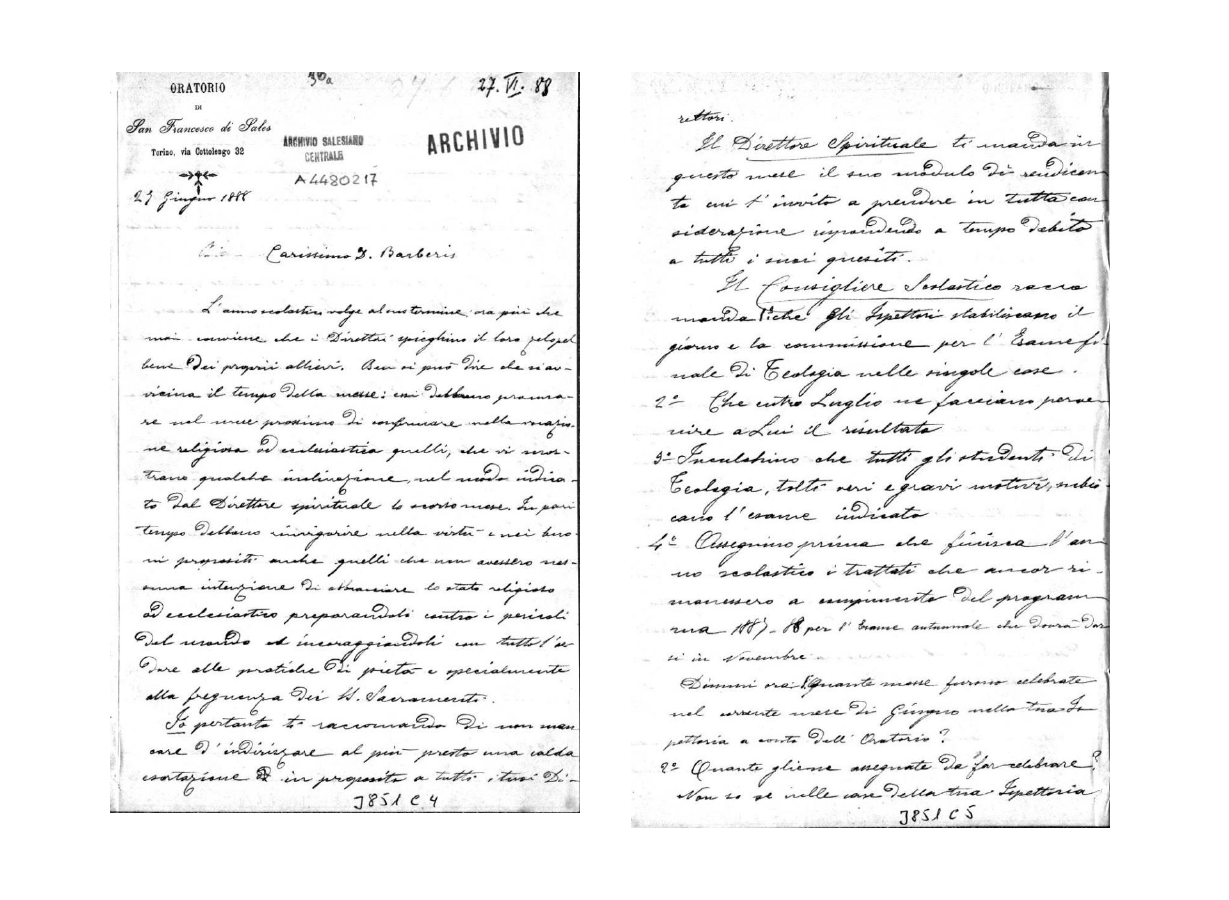 36a
27. VI. 88
ORATORIO
DI
San Francesco di Sales
Torino, via Cottolengo 32
ARCHIVIO SALESIANO
CENTRALE
A4480217
ARCHIVIO
27 Giugno 1888
Carissimo D. Barberis
L'anno scolastico volge al suo termine: ora più che
mai conviene che i Direttori spieghino il loro zelo pel
bene dei proprii allievi. Ben si può dire che si av-
vicina il tempo della messe: essi debbono procura-
re nel mese prossimo di confermare nella vocazio-
ne religiosa od ecclesiastica quelli, che vi mos-
trano qualche inclinazione, nel modo indica-
to dal Direttore spirituale lo scorso mese. In pari
tempo debbono rinvigorire nella virtù e nei buo-
ni propositi anche quelli che non avessero nes-
suna intenzione di abbracciare lo stato religioso
od ecclesiastico preparandoli contro i pericoli
del mondo ed incoraggiandoli con tutto l'ar-
dore alle pratiche di pietà e specialmente
alla frequenza dei SS. Sacramenti.
Io pertanto ti raccomando di non man
care d'indirizzare al più presto una calda
esortazione in proposito a tutti i tuoi Di-
J851 C 4
rettori.
Il Direttore Spirituale ti manda in
questo mese il suo modulo di rendicon
to cui t'invito a prendere in tutta con
siderazione rispondendo a tempo debito
a tutti i suoi quesiti.
Il Consigliere Scolastico racco
manda 1º che gli Ispettori stabiliscano il
giorno e la commissione per l'Esame fi-
nale di Teologia nelle singole case.
2º Che entro Luglio ne facciano perve-
nire a Lui il risultato
3º Inculchino che tutti gli studenti di
Teologia, tolti veri e gravi motivi, subis-
cano l'esame indicato
4º Assegnino prima che finisca l'an-
no scolastico i trattati che ancor ri-
manessero a compimento del program
ma 1887-88 per l'Esame autunnale che dovrà dar
si in Novembre
Dimmi ora 1º Quante messe furono celebrate
nel corrente mese di Giugno nella tua Is
pettoria a conto dell'Oratorio?
2º Quante gliene assegnate da far celebrare?
Non so se nelle case della tua Ispettoria
J851 C 5